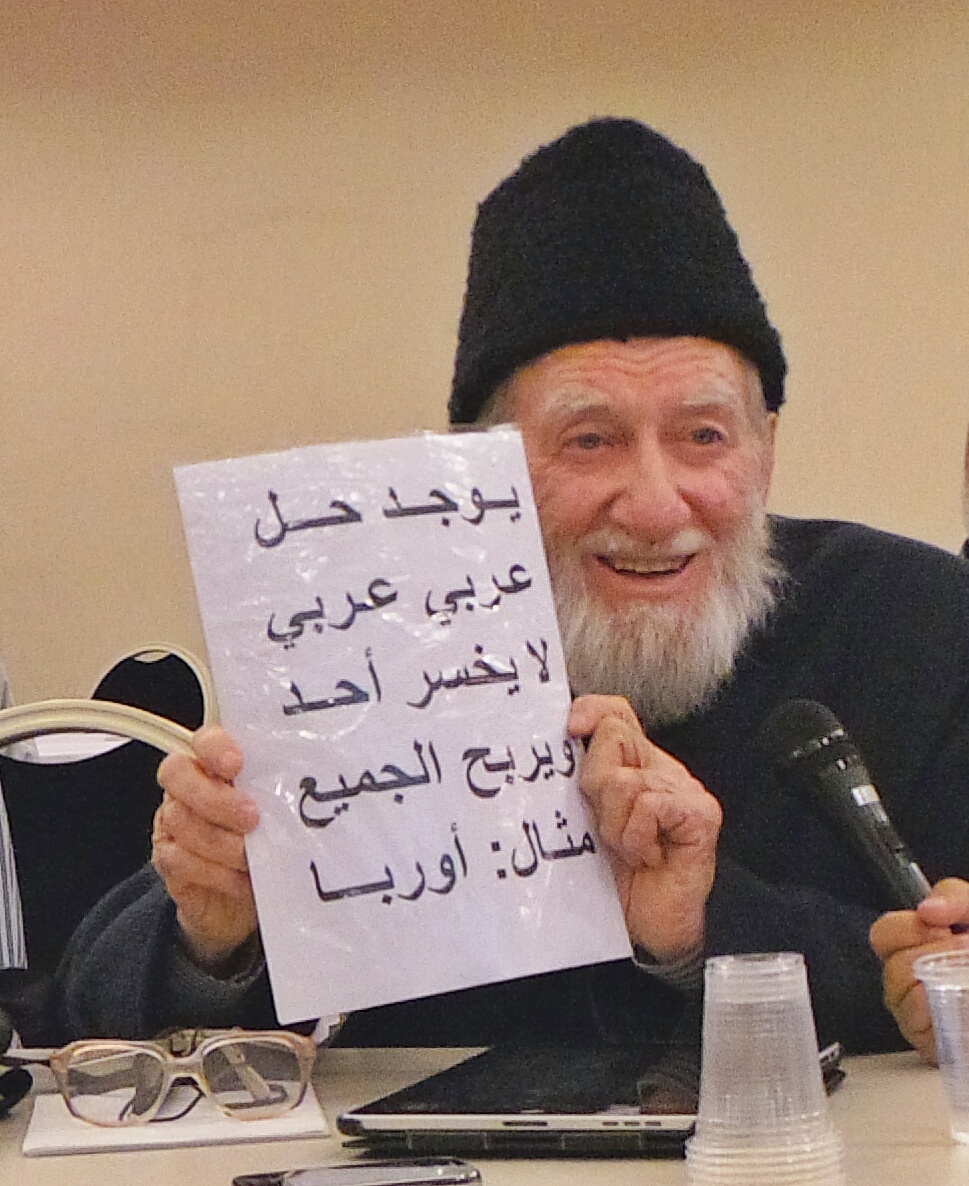 يوجد حل
عربي عربي
لا يخسر أحد
ويربح الجميع
مثال: أوربا